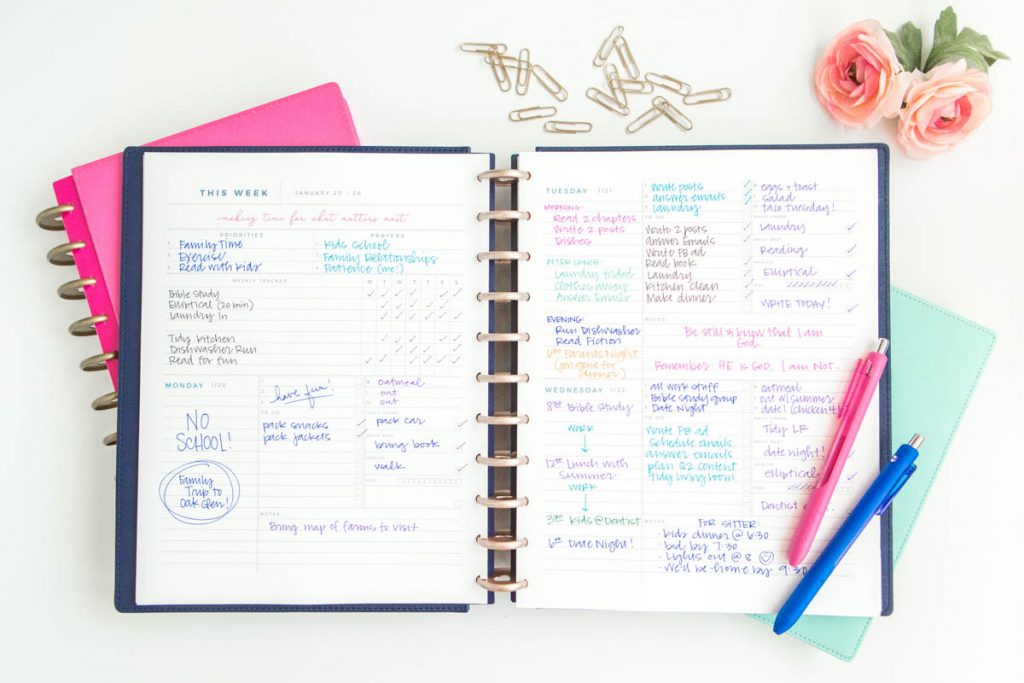 THIS WEEK
JANUARY 20 - 26
making time for what matters most
PRIORITIES
1 Family Time
2 Exercise
3 Read with Kids
PRAYERS
1 Kids School
2 Family Relationships
3 Patience (me!)
WEEKLY TRACKER
M T W T F S S
Bible Study
Elliptical (20 min)
Laundry In
Tidy Kitchen
Dishwasher Run
Read for fun
MONDAY 1/20
NO
SCHOOL!
Family
Trip to
Oak Glen!
have fun!
TO DO
pack snacks
pack jackets
oatmeal
out
out
pack car
bring book
HEALTH
walk
NOTES
Bring map of farms to visit
TUESDAY 1/21
MORNING:
Read 2 chapters
Write 2 posts
Dishes
AFTER LUNCH:
Laundry folded
Clothes away
Answer Emails
EVENING:
Run Dishwasher
Read Fiction
6:00 Parents Night
(jon gone for
dinner)
Write posts
answer emails
laundry
TO DO
Write 2 posts
answer emails
Write FB ad
Read book
Laundry
Kitchen clean
Make dinner
eggs + toast
salad
Taco Tuesday!
Laundry
Reading
HEALTH
Elliptical
WRITE TODAY!
NOTES
Be still & know that I am
God.
Remember: HE is God. I am NOT.
WEDNESDAY 1/22
8:30 Bible Study
WORK
12:00 Lunch with
Summer
WORK
3:00 Kids @ Dentist
6:00 Date Night!
all work stuff
Bible study group
Date Night
TO DO
Write FB ad
Schedule emails
answer emails
plan Q2 content
tidy living room!
oatmeal
out w/ summer
date!
Tidy LR
date night!
HEALTH
elliptical
Dentist
NOTES
FOR SITTER:
· kids dinner @ 6:30
· bed by 7:30
· Lights out @ 8
· We'll be home by 9:30